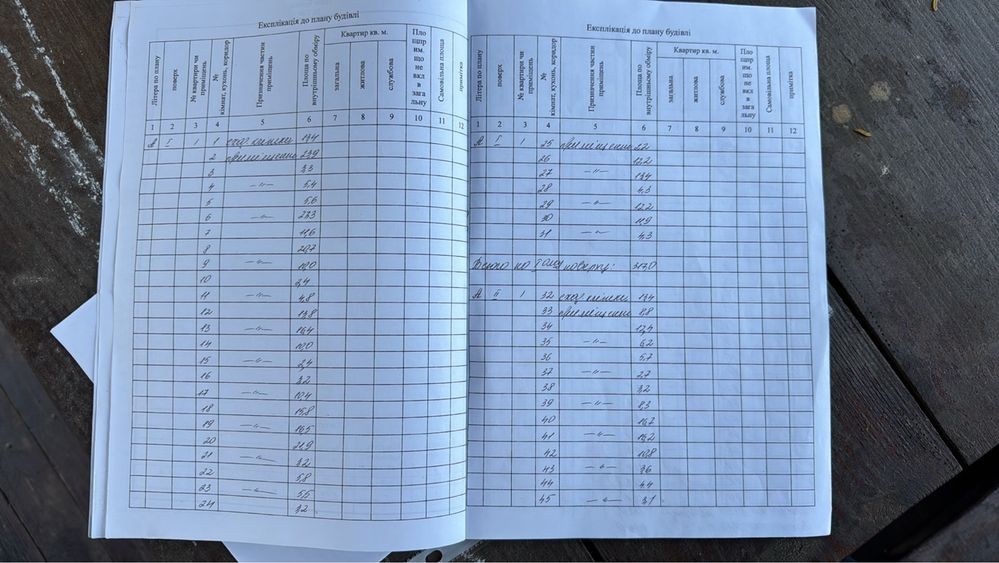 Експлікація до плану будівлі
Літера по плану
поверх
№ квартири чи приміщень
№ кімнат, кухонь, коридор
Призначення частин приміщень
Площа по внутрішньому обміру
Квартир кв. м.
загальна
житлова
службова
Пло щпр им. що не вкл в зага льну
Самовільна площа
примітка
1 2 3 4 5 6 7 8 9 10 11 12
А І 1 1 сход. клітка
2 приміщення 23,9
3 3,3
4 —"— 5,4
5 5,6
6 —"— 23,3
7 11,6
8 20,7
9 —"— 10,0
10 2,4
11 —"— 4,8
12 13,8
13 —"— 16,4
14 10,0
15 —"— 2,4
16 3,2
17 —"— 10,4
18 15,8
19 —"— 16,5
20 21,9
21 —"— 3,2
22 5,8
23 —"— 5,6
24 3,2
Експлікація до плану будівлі
Літера по плану
поверх
№ квартири чи приміщень
№ кімнат, кухонь, коридор
Призначення частин приміщень
Площа по внутрішньому обміру
Квартир кв. м.
загальна
житлова
службова
Пло щпр им. що не вкл в зага льну
Самовільна площа
примітка
1 2 3 4 5 6 7 8 9 10 11 12
А І 1 25 приміщення
26 12,2
27 —"—
28 4,3
29 —"— 12,2
30 11,9
31 —"— 4,3
Всього по І поверху: 313,0
А ІІ 1 32 сход. клітка
33 приміщення 8,8
34 12,4
35 —"— 6,2
36 5,7
37 —"— 2,7
38 3,2
39 —"— 8,3
40 16,7
41 —"— 16,2
42 10,8
43 —"— 3,6
44 4,4
45 —"— 3,1